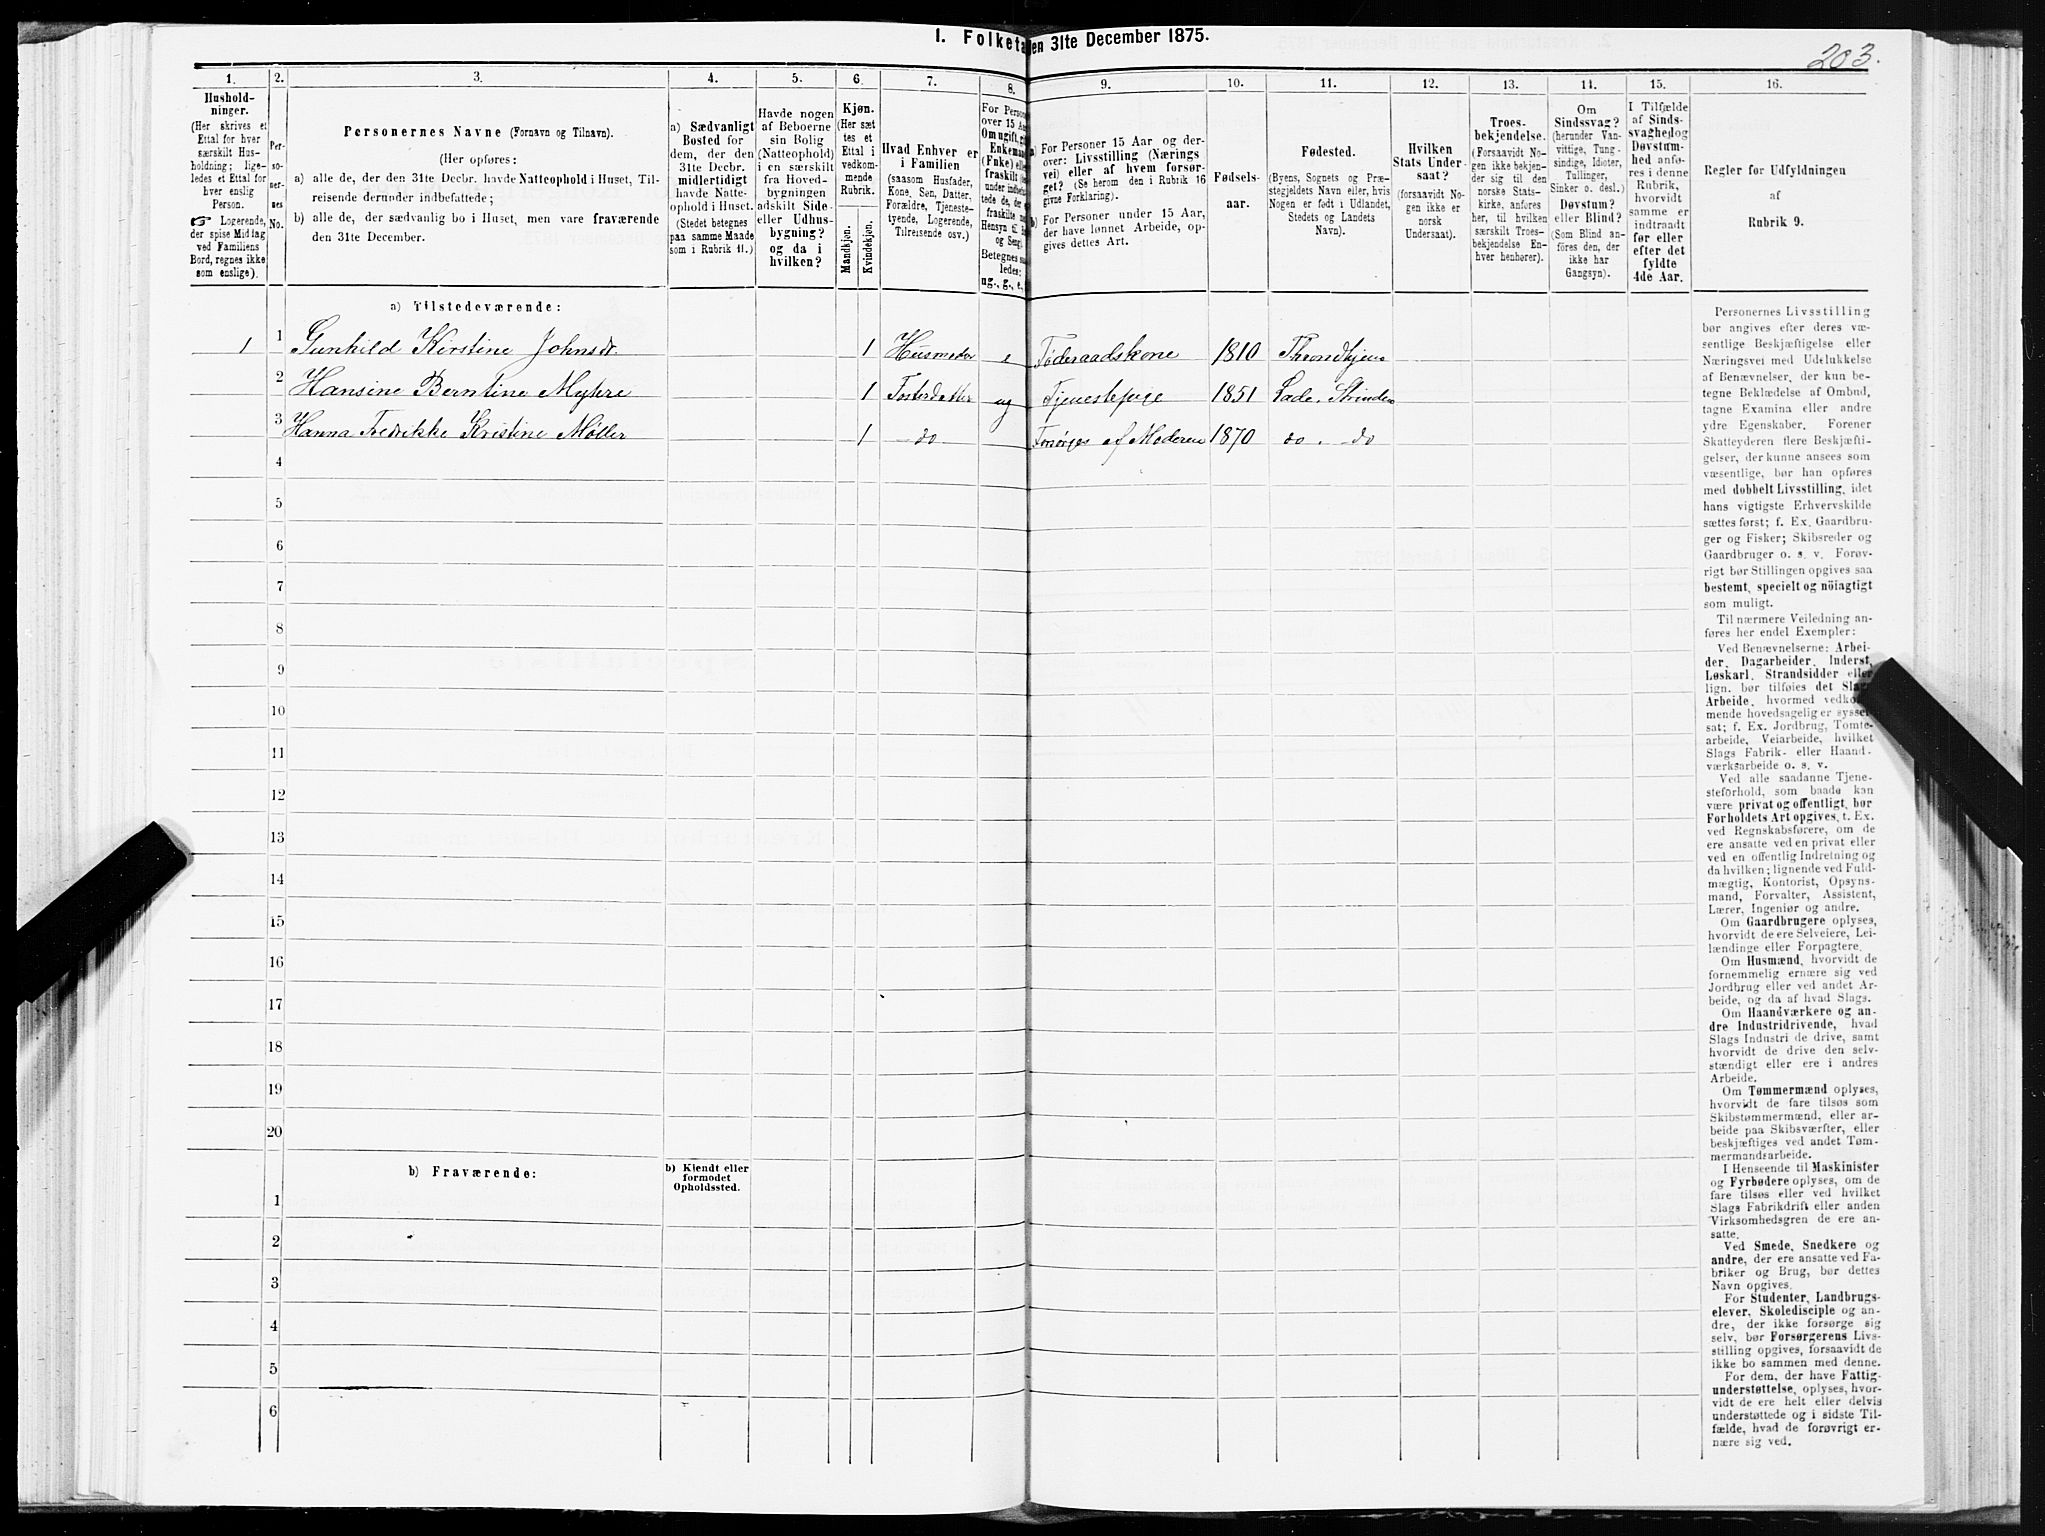 1. Folketæ en 31te December 1875.
203.
1. 2. 3. 4. 5. 6. 7. 8. 9. 10. 11. 12. 13. 14. 15. 16.
Hushold-
ninger.
(Her skrives et
Ettal for hver
særskilt Hus-
holdning; lige-
ledes et Ettal for
hver enslig
Person.
☞ Logerende,
der spise Middag
ved Familiens
Bord, regnes ikke
som enslige).
Per-
so-
ner-
nes
No.
Personernes Navne (Fornavn og Tilnavn).
(Her opføres:
a) alle de, der den 31te Decbr. havde Natteophold i Huset, Til-
reisende derunder indbefattede;
b) alle de, der sædvanlig bo i Huset, men vare fraværende
den 31te December.
a) Sædvanligt
Bosted for
dem, der den
31te Decbr.
midlertidigt
havde Natte-
ophold i Huset.
(Stedet betegnes
paa samme Maade
som i Rubrik 11.)
Havde nogen
af Beboerne
sin Bolig
(Natteophold)
i en særskilt
fra Hoved-
bygningen
adskilt Side-
eller Udhus-
bygning?
og da i
hvilken?
Kjøn.
(Her sæt
tes et
Ettal i
vedkom-
mende
Rubrik.
Mandkjøn.
Kvindekjøn.
Hvad Enhver er
i Familien
(saasom Husfader,
Kone, Søn, Datter,
Forældre, Tjeneste-
tyende, Logerende,
Tilreisende osv.)
For Perso
over 15 Aa
Om ugift, g
Enkeman
(Enke) elle
fraskilt
under indbefat
tede de, der e
fraskilte m
Hensyn til
og Seng).
Betegnes s
ledes:
ug., g., e.,
a) For Personer 15 Aar og der-
over: Livsstilling (Nærings
vei) eller af hvem forsør-
get? (Se herom den i Rubrik 16
givne Forklaring).
b) For Personer under 15 Aar,
der have lønnet Arbeide, op-
gives dettes Art.
Fødsels-
aar.
Fødested.
(Byens, Sognets og Præ-
stegjeldets Navn eller, hvis
Nogen er født i Udlandet,
Stedets og Landets
Navn).
Hvilken
Stats Under-
saat?
(forsaavidt No-
gen ikke er
norsk
Undersaat).
Troes-
bekjendelse.
(Forsaavidt No-
gen ikke bekjen-
der sig til den
norske Stats-
kirke, anføres
her, til hvilken
særskilt Troes-
bekjendelse En-
hver henhører).
Om
Sindssvag?
(herunder Van-
vittige, Tung-
sindige, Idioter,
Tullinger,
Sinker o. desl.)
Døvstum?
eller Blind?
(Som Blind an-
føres den, der
ikke har
Gangsyn).
I Tilfælde
af Sinds-
svaghed og
Døvstum-
hed anfø-
res i denne
Rubrik,
hvorvidt
samme er
indtraadt
før eller
efter det
fyldte
4de Aar.
Regler for Udfyldningen
af
Rubrik 9.
a) Tilstedeværende:
1 1 Gunhild Kirstine Johnsdr. 1 Husmoder e Føderaadskone 1810 Throndhjem
2 Hansine Berntine Myhre 1 Fosterdatter ug Tjenestepige 1851 Lade. Strinden
3 Hanna Fredrikke Kristine Møller 1 do Forsørges af Moderen 1870 do. do
4
5
6
7
8
9
10
11
12
13
14
15
16
17
18
19
20
b) Fraværende:
b) Kjendt eller
formodet
Opholdssted.
1
2
3
4
5
6
Personernes Livsstilling
bør angives efter deres væ-
sentlige Beskjæftigelse eller
Næringsvei med Udelukkelse
af Benævnelser, der kun be-
tegne Beklædelse af Ombud,
tagne Examina eller andre
ydre Egenskaber. Forener
Skatteyderen flere Beskjæfti-
gelser, der kunne ansees som
væsentlige, bør han opføres
med dobbelt Livsstilling, idet
hans vigtigste Erhvervskilde
sættes først; f. Ex. Gaardbru-
ger og Fisker; Skibsreder og
Gaardbruger o. s. v. Forøv-
rigt bør Stillingen opgives saa
bestemt, specielt og nøiagtigt
som muligt.
Til nærmere Veiledning an-
føres her endel Exempler:
Ved Benævnelserne: Arbei-
der, Dagarbeider, Inderst,
Løskarl, Strandsidder eller
lign. bør tilføies det Slags
Arbeide, hvormed vedkom-
mende hovedsagelig er syssel-
sat; f. Ex. Jordbrug, Tomte-
arbeide, Veiarbeide, hvilket
Slags Fabrik- eller Haand-
værksarbeide o. s. v.
Ved alle saadanne Tjene-
steforhold, som baade kan
være privat og offentligt, bør
Forholdets Art opgives, t. Ex.
ved Regnskabsførere, om de
ere ansatte ved en privat eller
ved en offentlig Indretning og
da hvilken; lignende ved Fuld-
mægtig, Kontorist, Opsyns-
mand, Forvalter, Assistent,
Lærer, Ingeniør og andre.
Om Gaardbrugere oplyses,
hvorvidt de ere Selveiere, Lei-
lændinge eller Forpagtere.
Om Husmænd, hvorvidt de
fornemmelig ernære sig ved
Jordbrug eller ved andet Ar-
beide, og da af hvad Slags.
Om Haandværkere og an-
dre Industridrivende, hvad
Slags Industri de drive, samt
hvorvidt de drive den selv-
stændigt eller ere i andres
Arbeide.
Om Tømmermænd oplyses,
hvorvidt de fare tilsøs som
Skibstømmermænd, eller ar-
beide paa Skibsværfter, eller
beskjæftiges ved andet Tøm-
mermandsarbeide.
I Henseende til Maskinister
og Fyrbødere oplyses, om de
fare tilsøs eller ved hvilket
Slags Fabrikdrift eller anden
Virksomhedsgren de ere an-
satte.
Ved Smede, Snedkere og
andre, der ere ansatte ved Fa-
briker og Brug, bør dettes
Navn opgives.
For Studenter, Landbrugs-
elever, Skoledisciple og an-
dre, der ikke forsørge sig
selv, bør Forsørgerens Livs-
stilling opgives, forsaavidt de
ikke bo sammen med denne.
For dem, der have Fattig-
understøttelse, oplyses, hvor-
vidt de ere helt eller delvis
understøttede og i sidste Til-
fælde, hvad de forøvrigt er-
nære sig ved.